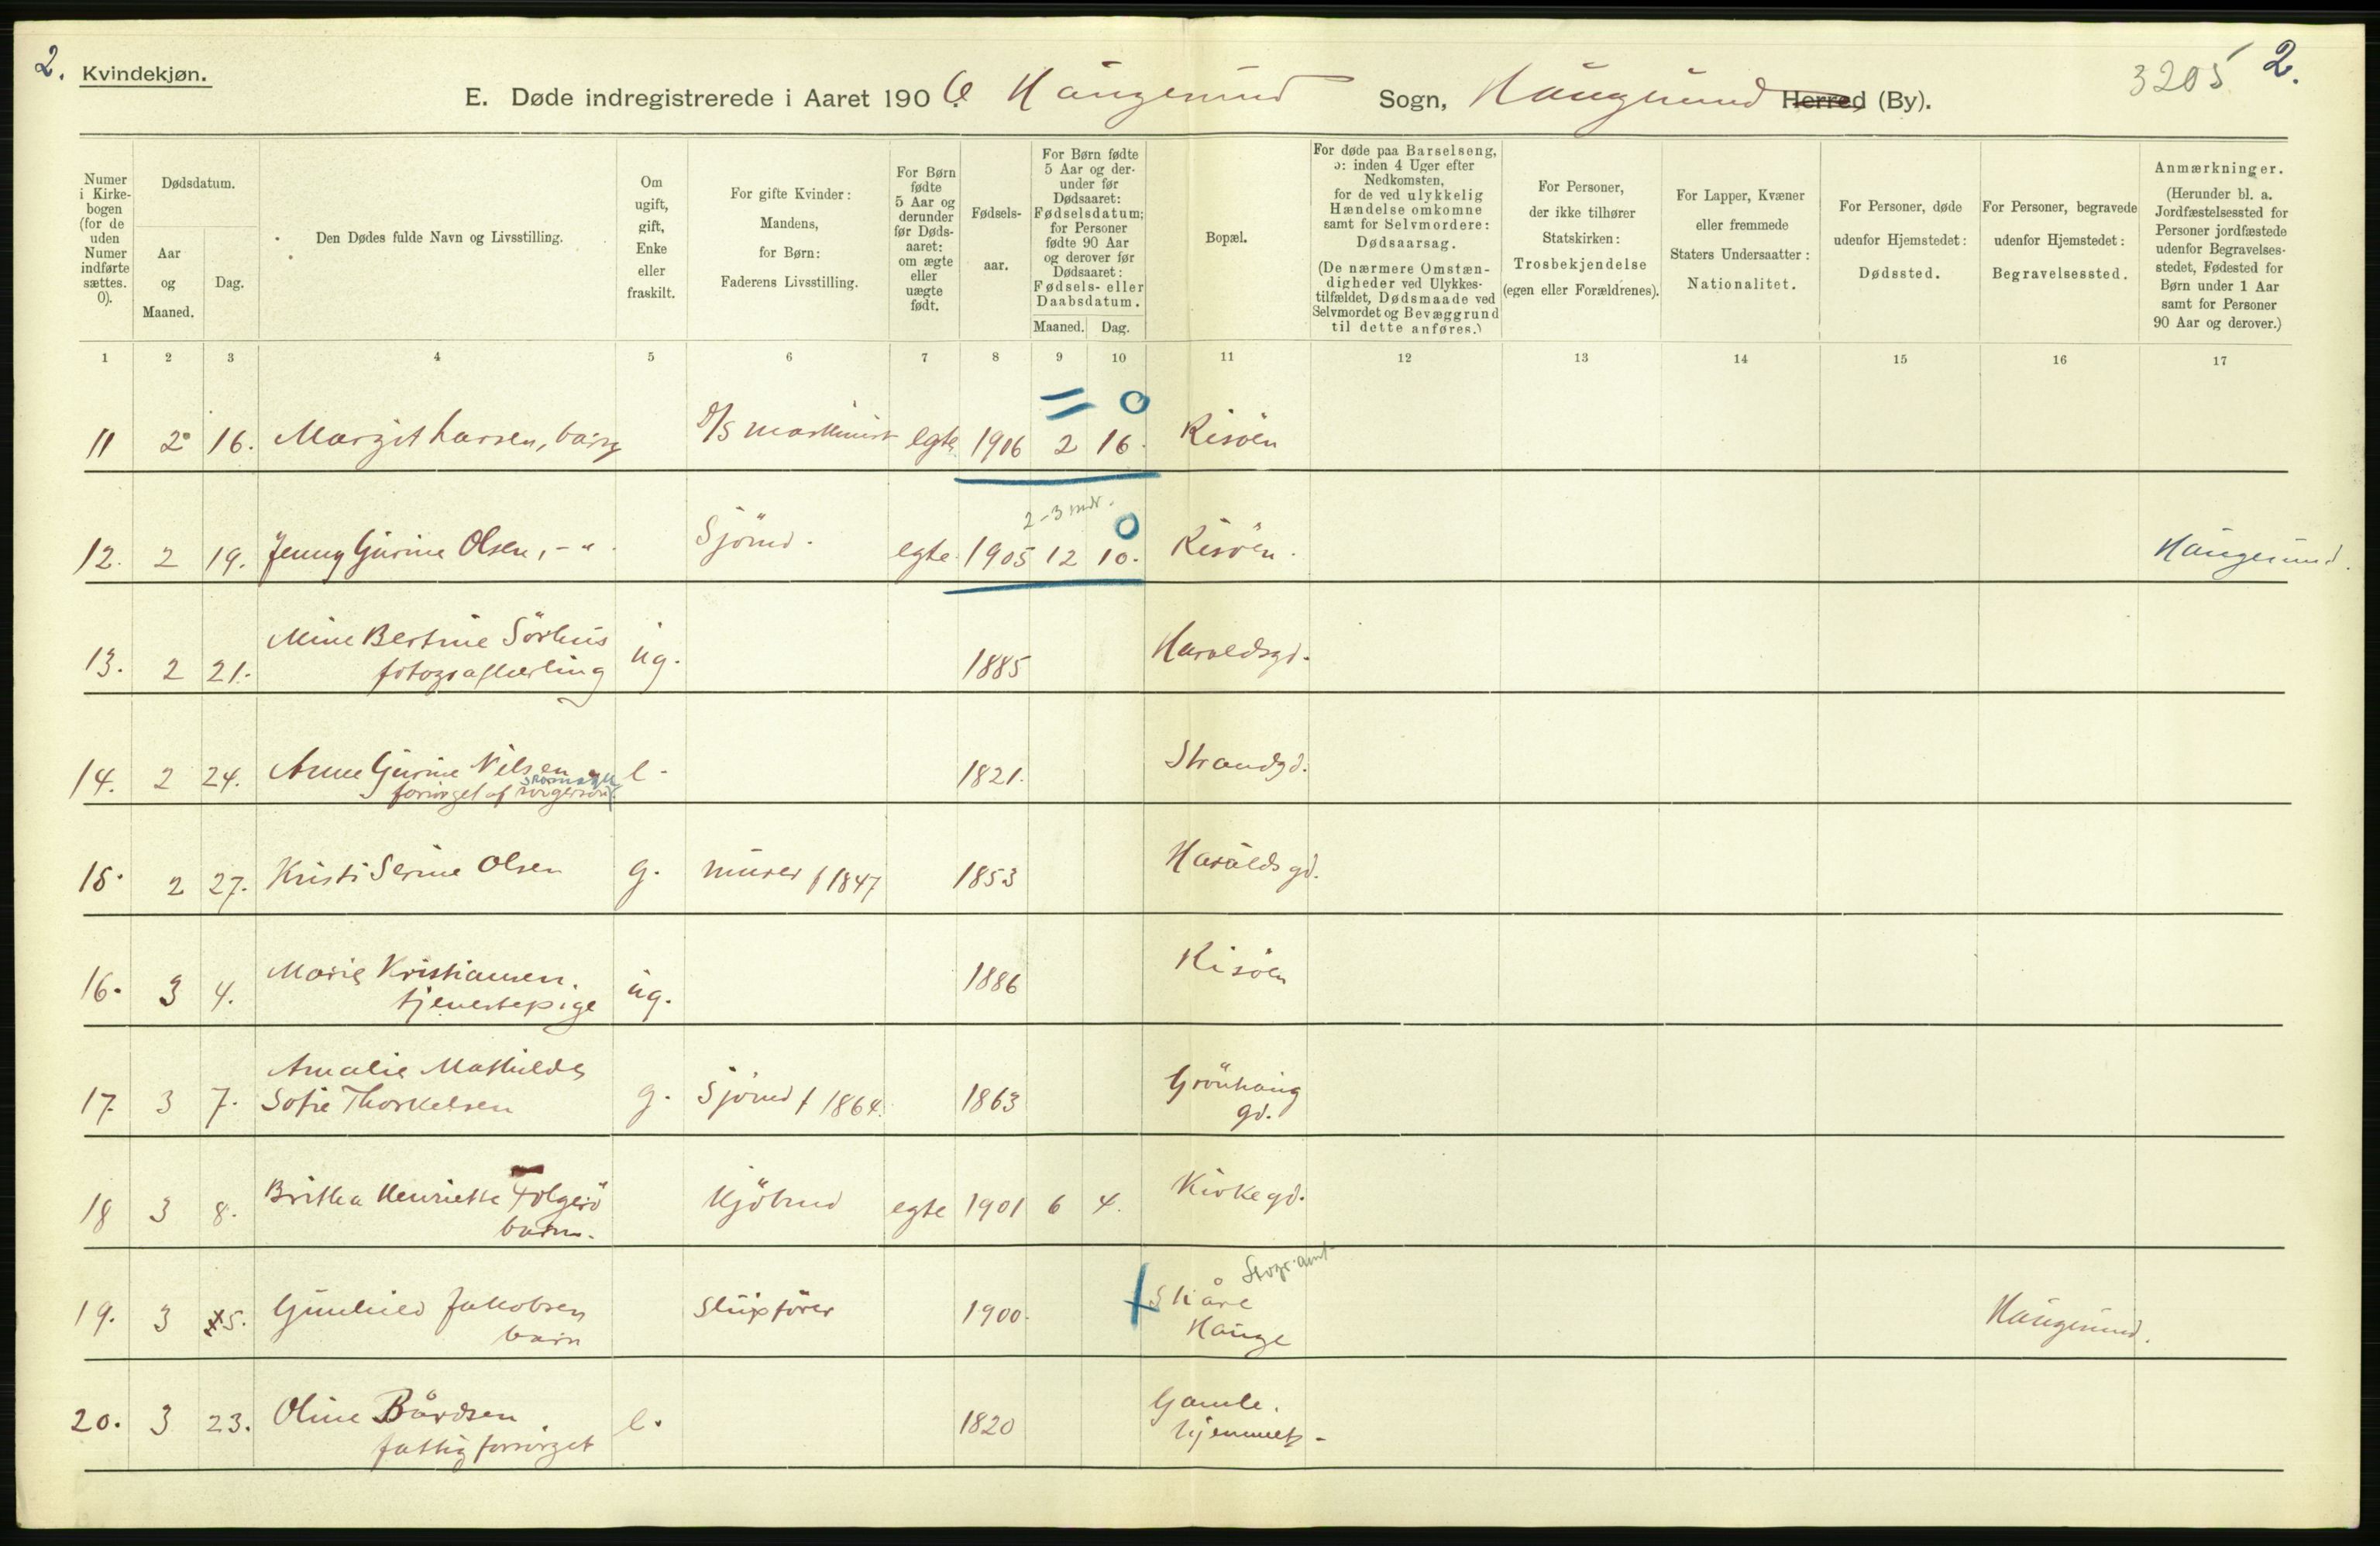 2. Kvindekjøn.
E. Døde indregistrerede i Aaret 1906. Haugesund Sogn, Haugesund Herred (By). 3205 2.
Numer i Kirkebogen (for de uden Numer indførte sættes. 0).
Dødsdatum.
Aar og Maaned.
Dag.
Den Dødes fulde Navn og Livsstilling.
Om ugift, gift, Enke eller fraskilt.
For gifte Kvinder: Mandens, for Børn: Faderens Livsstilling.
For Børn fødte 5 Aar og derunder før Dødsaaret: om ægte eller uægte født.
Fødselsaar.
For Børn fødte 5 Aar og derunder før Dødsaaret: Fødselsdatum; for Personer fødte 90 Aar og derover før Dødsaaret: Fødsels- eller Daabsdatum.
Maaned. Dag.
Bopæl.
For døde paa Barselseng, ɔ: inden 4 Uger efter Nedkomsten, for de ved ulykkelig Hændelse omkomne samt for Selvmordere: Dødsaarsag.
(De nærmere Omstændigheder ved Ulykkestilfældet, Dødsmaade ved Selvmordet og Bevæggrund til dette anføres.)
For Personer, der ikke tilhører Statskirken: Trosbekjendelse (egen eller Forældrenes).
For Lapper, Kvæner eller fremmede Staters Undersaatter: Nationalitet.
For Personer, døde udenfor Hjemstedet: Dødssted.
For Personer, begravede udenfor Hjemstedet: Begravelsessted.
Anmærkninger.
(Herunder bl. a. Jordfæstelsessted for Personer jordfæstede udenfor Begravelsesstedet, Fødested for Børn under 1 Aar samt for Personer 90 Aar og derover.)
1 2 3 4 5 6 7 8 9 10 11 12 13 14 15 16 17
11 2 16. Margit Larsen, barn D/S maskinist egte 1906 2 16. Risöen
= 0
12. 2 19. Jenny Gurine Olsen, -"- Sjömd. egte. 1905 12 10. Risöen. Haugesund.
2-3 mdr. 0
13. 2 21. Mine Bertine Sörhus ug. 1885 Haraldsgd.
fotograflærling
14. 2 24. Anne Gurine Nilsen e. 1821. Strandgd.
forsörget af svigersön
15. 2 27. Kristi Serine Olsen g. murer f 1847 1853 Haraldsgd.
16. 3 4. Marie Kristiansen. ug. 1886 Risöen
tjenestepige
17. 3 7. Amalie Mathilde g. Sjömd f 1864. 1863 Grönhaug
Sofie Thorkelsen gd.
18 3 8. Britha Henriette Folgerö Kjöbmd egte 1901 6 4. Kirkegd.
barn.
19. 3 5. Gunhild Jakobsen Slupförer 1900. Skåre Haugesund.
barn Hauge
20. 3 23. Oline Bårdsen. e. 1820 Gamle.
fattigforsörget hjemmet.